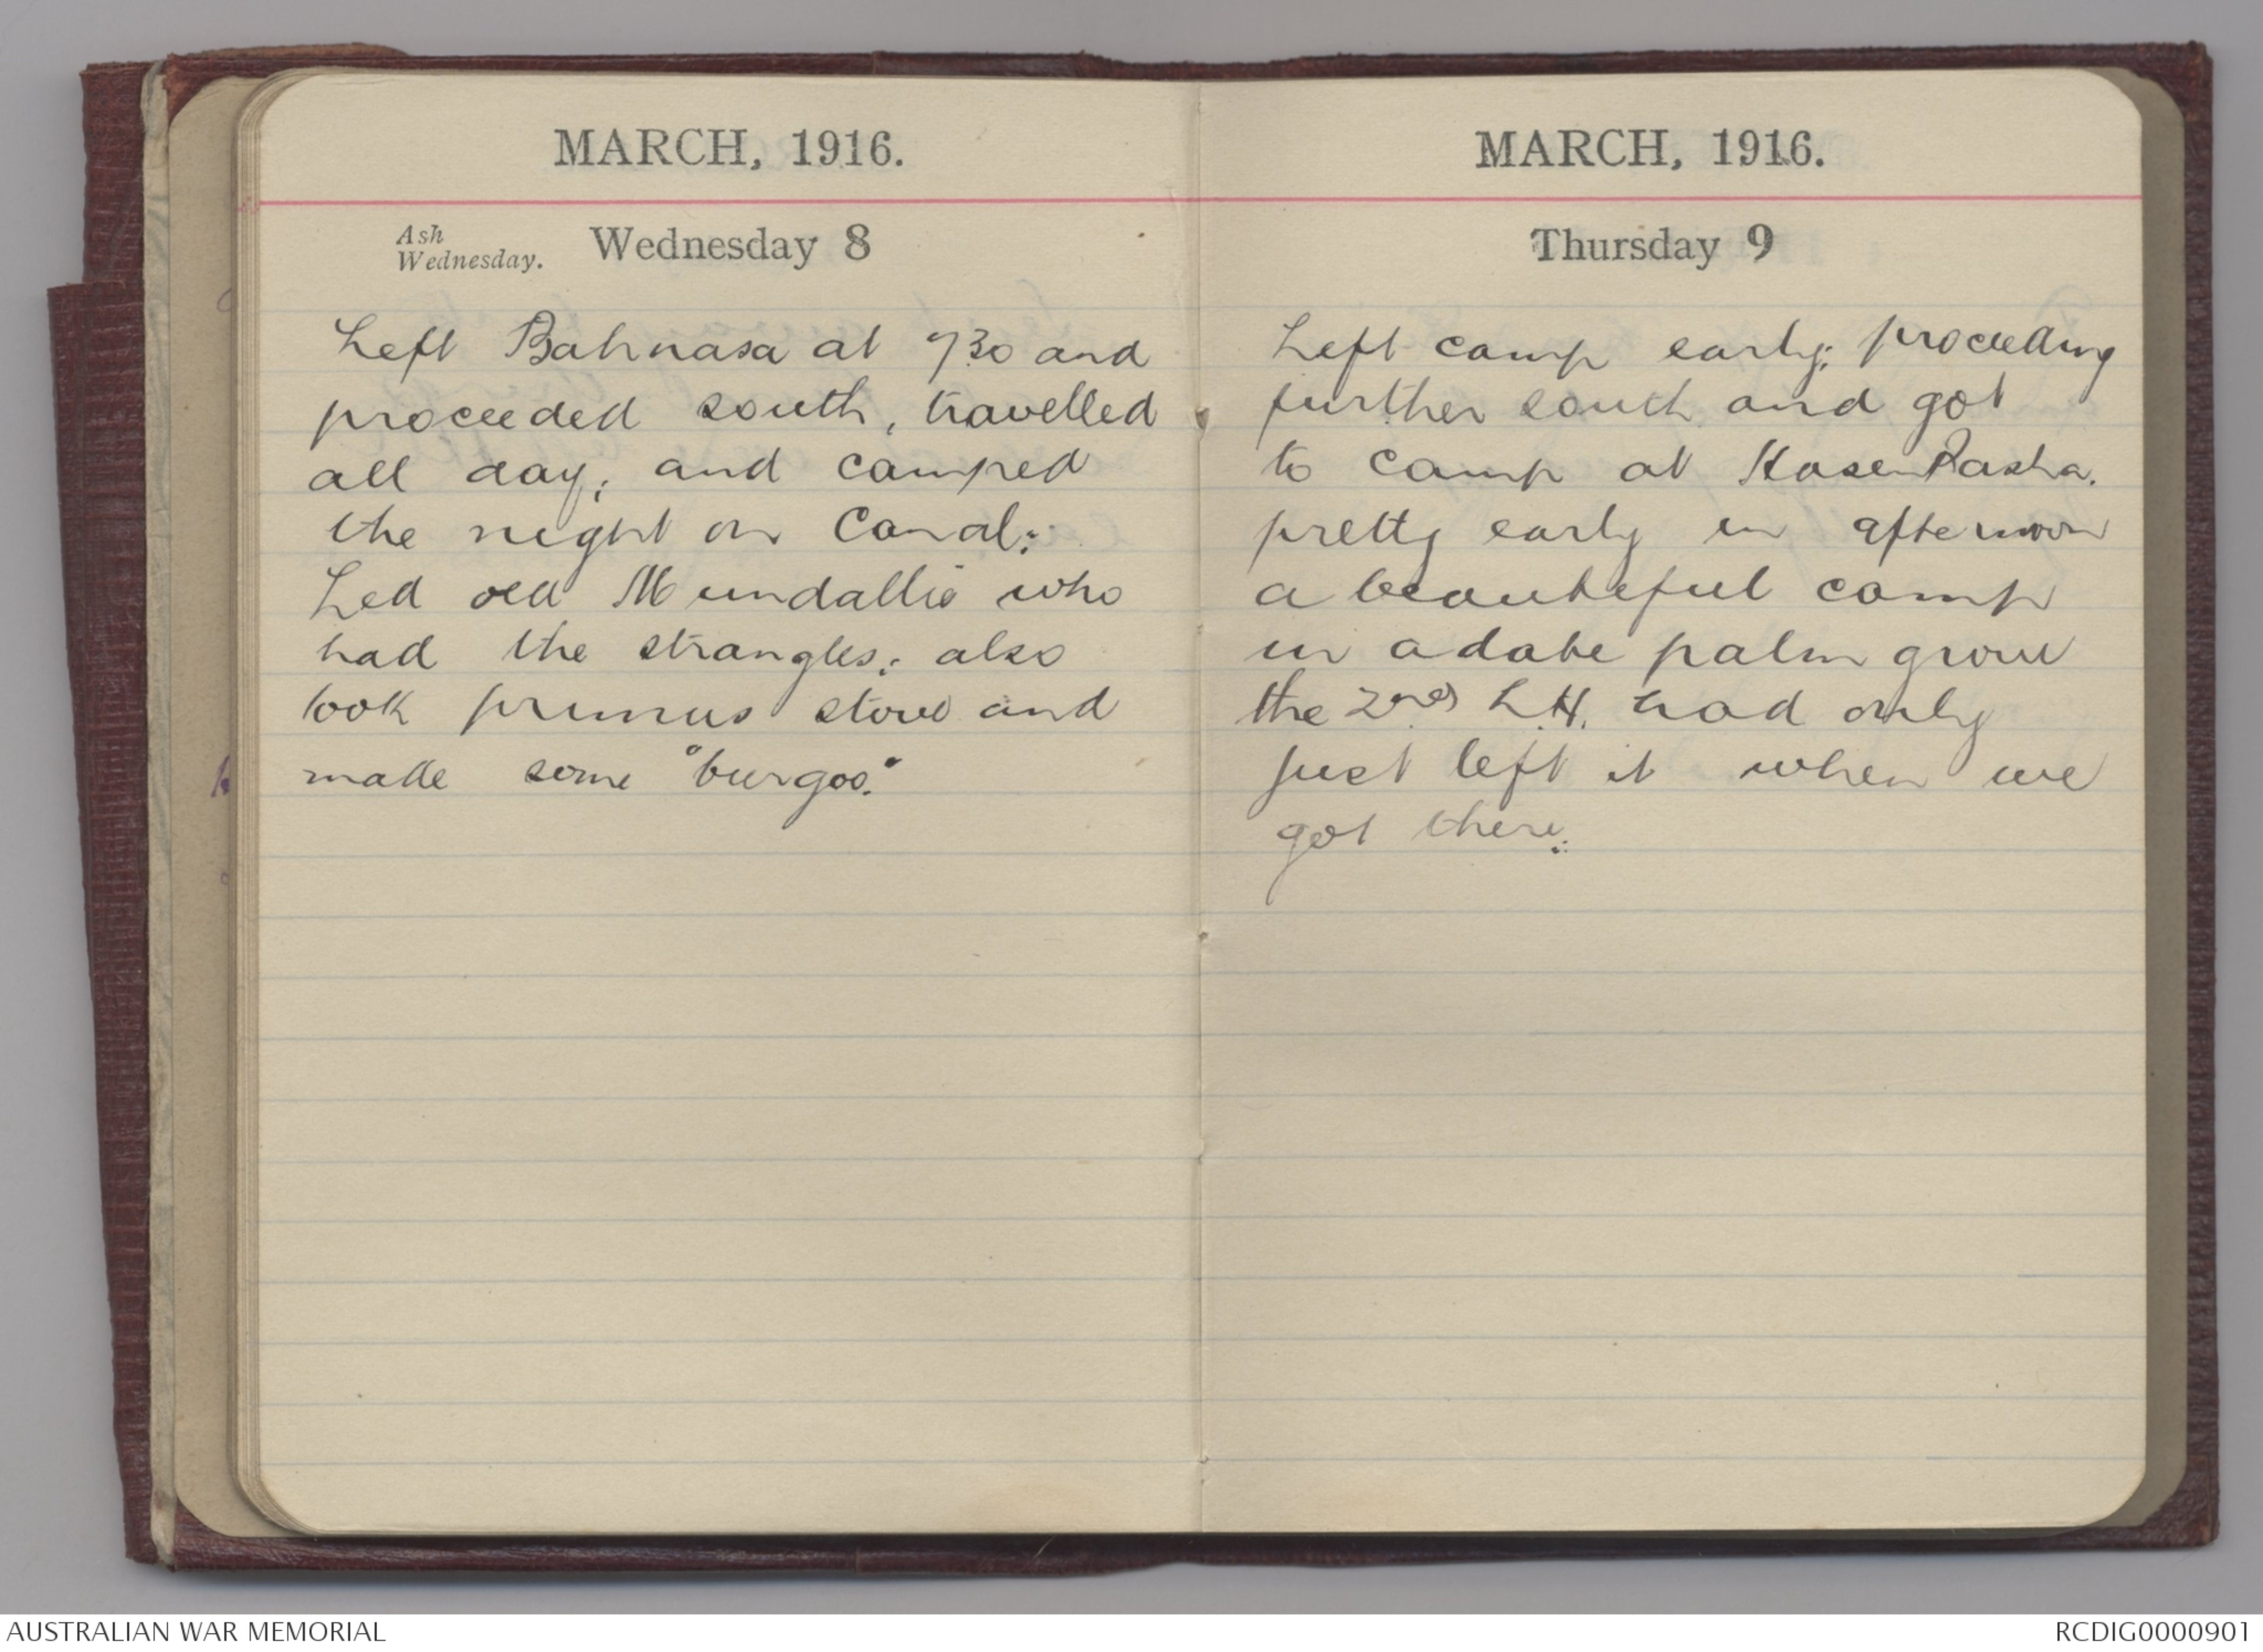 MARCH, 1916.
Ash
Wednesday. Wednesday 8
Left Bahnasa at 730 and
proceeded south, travelled
all day; and camped
the night on Canal:
Led old Mundallio who
had the strangles; also
took primus stove and
made some "burgoo."
MARCH, 1916.
Thursday 9
Left camp early; proceeding
further south and got
to camp at Hasen Pasha.
pretty early in afternoon
a beautiful camp
in a date palm grove
the 2nd L.H. had only
just left it when we
got there.
AUSTRALIAN WAR MEMORIAL
RCDIG0000901